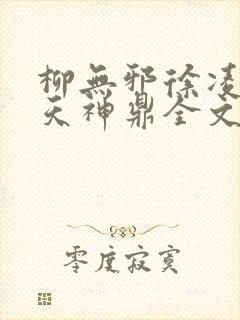 柳無邪徐凌
天神鼎全文
零度寂寞